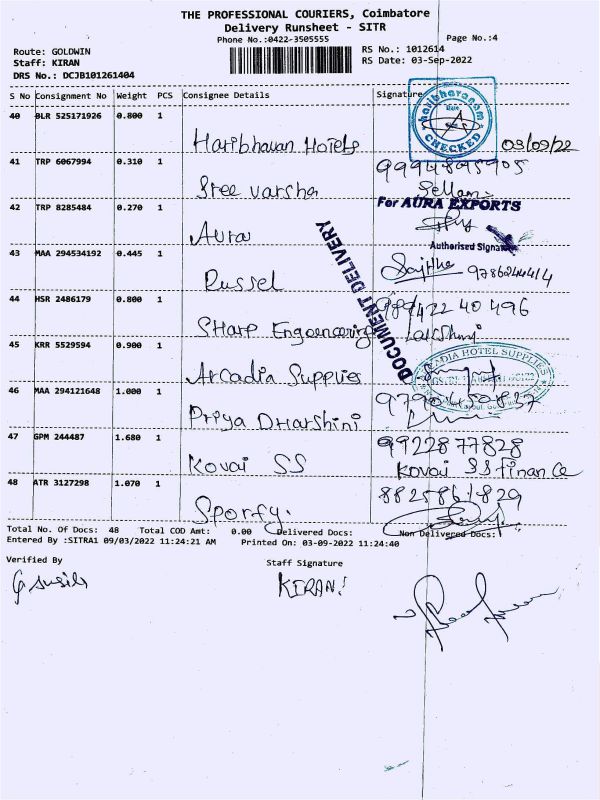 THE PROFESSIONAL COURIERS, Coimbatore
Delivery Runsheet - SITR
Phone No.:0422-3505555
Page No.:4
Route: GOLDWIN
RS No.: 1012614
Staff: KIRAN
RS Date: 03-Sep-2022
DRS No.: DCJB101261404
S No Consignment No Weight PCS Consignee Details Signature
40 BLR 525171926 0.800 1
haribhavanam
CHECKED
Haribhavan Hotels
03/09/22
41 TRP 6067994 0.310 1
Sree varsha
9994895905
Sellam
42 TRP 8285484 0.270 1
For AURA EXPORTS
Aura
Authorised
43 MAA 294534192 0.445 1
DOCUMENT DELIVERY
Russel
9786244414
44 HSR 2486179 0.800 1
Sharp Engoeneering
Lakshmi
45 KRR 5529594 0.900 1
Arcadia Supplies
HOTEL SUPPLIES
46 MAA 294121648 1.000 1
Priya Dharshini
47 GPM 244487 1.680 1
9922877828
Kovai SS
Kovai SS Finance
48 ATR 3127298 1.070 1
8825861829
Sporfy.
Total No. Of Docs: 48 Total COD Amt: 0.00 Delivered Docs: Non Delivered Docs:
Entered By :SITRA1 09/03/2022 11:24:21 AM Printed On: 03-09-2022 11:24:40
Verified By
Staff Signature
KIRAN!